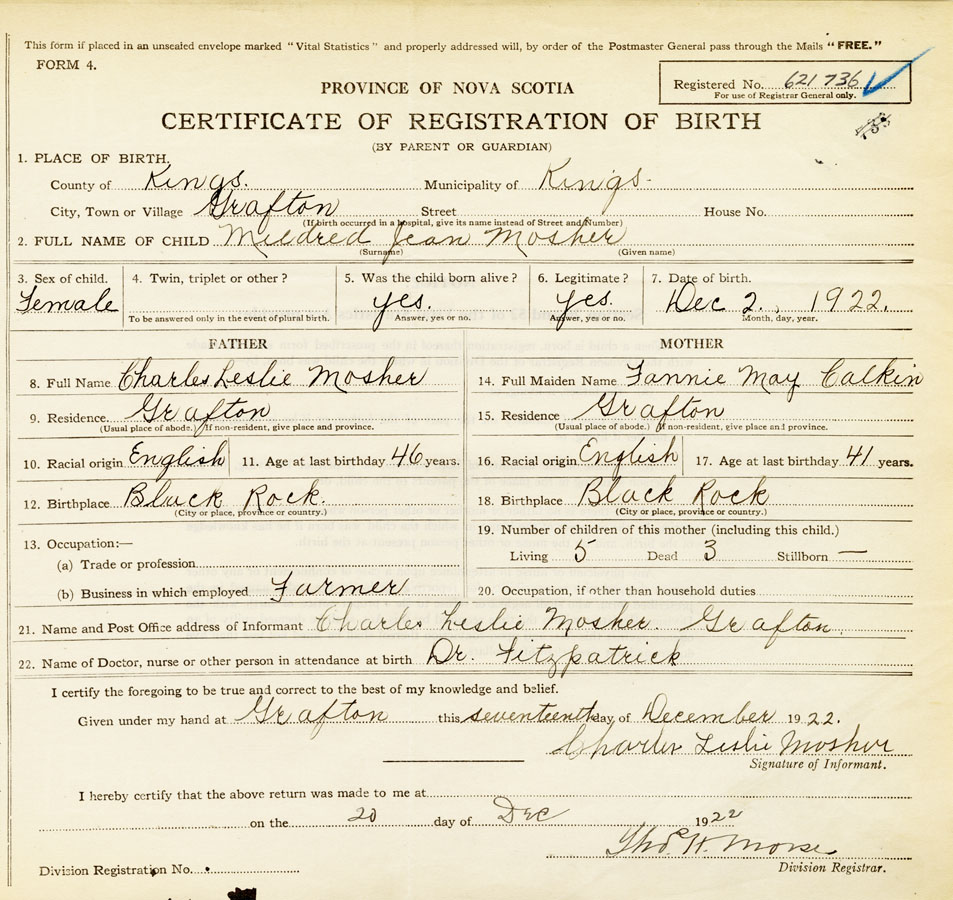 This form if placed in an unsealed envelope marked "Vital Statistics" and properly addressed will, by order of the Postmaster General pass through the Mails "FREE."
FORM 4.
Registered No. 621 736
For use of Registrar General only.
PROVINCE OF NOVA SCOTIA
CERTIFICATE OF REGISTRATION OF BIRTH
(BY PARENT OR GUARDIAN)
1. PLACE OF BIRTH,
County of Kings. Municipality of Kings-
City, Town or Village Grafton Street House No.
(If birth occurred in a hospital, give its name instead of Street and Number)
2. FULL NAME OF CHILD Mildred Jean Mosher
(Surname) (Given name)
3. Sex of child. 4. Twin, triplet or other? 5. Was the child born alive? 6. Legitimate? 7. Date of birth.
Female yes. yes. Dec 2., 1922.
To be answered only in the event of plural birth. Answer, yes or no. Answer, yes or no. Month, day, year.
FATHER MOTHER
8. Full Name Charles Leslie Mosher 14. Full Maiden Name Fannie May Calkin
9. Residence. Grafton 15. Residence Grafton
(Usual place of abode.) If non-resident, give place and province. (Usual place of abode.) If non-resident, give place and province.
10. Racial origin English 11. Age at last birthday 46 years. 16. Racial origin English 17. Age at last birthday 41 years.
12. Birthplace Black Rock. 18. Birthplace Black Rock
(City or place, province or country.) (City or place, province or country.)
13. Occupation:— 19. Number of children of this mother (including this child.)
Living 5 Dead 3 Stillborn —
(a) Trade or profession
(b) Business in which employed Farmer 20. Occupation, if other than household duties
21. Name and Post Office address of Informant Charles Leslie Mosher Grafton.
22. Name of Doctor, nurse or other person in attendance at birth Dr. Fitzpatrick
I certify the foregoing to be true and correct to the best of my knowledge and belief.
Given under my hand at Grafton this seventeenth day of December 1922.
Charles Leslie Mosher
Signature of Informant.
I hereby certify that the above return was made to me at
on the 20 day of Dec 1922
Thos. H. Morse
Division Registrar.
Division Registration No.